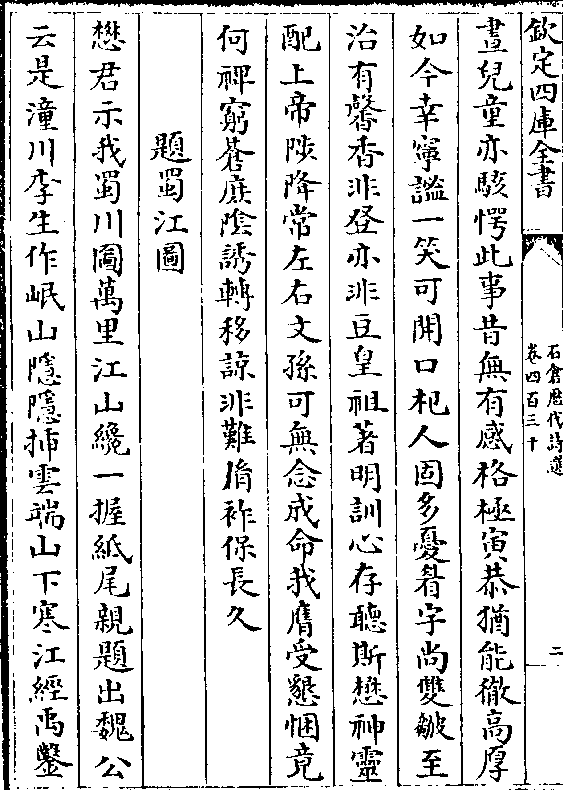 欽定四庫全書
石倉歷代詩選
卷四百三十
二
晝兒童亦駭愕此事昔無有感格極寅恭猶能徹高厚
如今幸寧謐一笑可開口杞人固多憂眉字尚雙皺至
治有馨香非登亦非豆皇祖著明訓心存聽斯懋神靈
配上帝陟降常左右文孫可無念成命我膺受懇悃竟
何裨窮蒼庶陰誘轉移諒非難脩祚保長久
題蜀江圖
懋君示我蜀川圖萬里江山纔一握紙尾親題出魏公
云是潼川李生作岷山隱隱揷雲端山下寒江經禹鑿